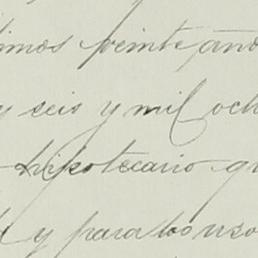 timos veinte años
y seis y mil och
hipotecario q
y para los uso